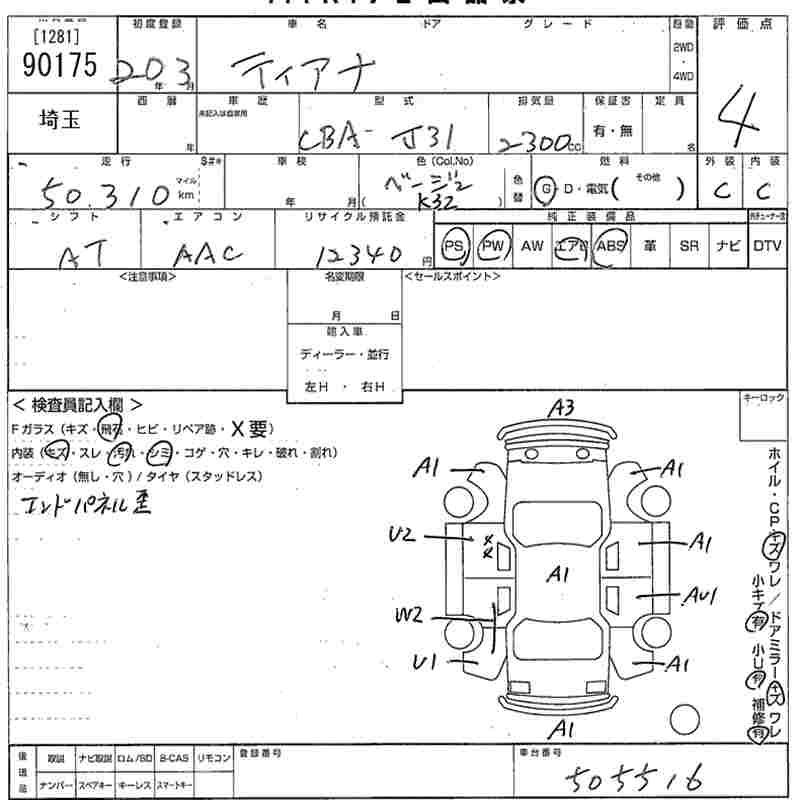 [1281]
90175
初度登録 車名 ドア グレード 評価点
20 年 3 月 ティアナ 2WD・4WD 4
埼玉
西暦 車歴 型式 排気量 保証書 定員
未記入は自家用
年 CBA-J31 2300cc 有・無 名
走行 $#* 車検 色(Col,No) 色替 燃料 外装 内装
50.310 マイル km 年 月 ( ベージュ K32 ) G・D・電気( その他 ) C C
シフト エアコン リサイクル預託金 純正装備品
AT AAC 12340円 PS PW AW エアB ABS 革 SR ナビ DTV
<注意事項> 名変期限 <セールスポイント>
月 日
輸入車
ディーラー・並行
左H・右H
< 検査員記入欄 > キーロック
Fガラス(キズ・飛石・ヒビ・リペア跡・X要)
内装(キズ・スレ・汚れ・シミ・コゲ・穴・キレ・破れ・割れ)
オーディオ(無し・穴)/タイヤ(スタッドレス)
エンドパネル歪
A3
A1 A1
U2 XX A1
A1
W2 AU1
U1 A1
A1
ホイル・CPキズワレ/ドアミラーキズワレ
小キズ有 小U有 補修有
後送品 取説 ナビ取説 ロム/SD B-CAS リモコン 登録番号 車台番号
ナンバー スペアキー キーレス スマートキー 505516